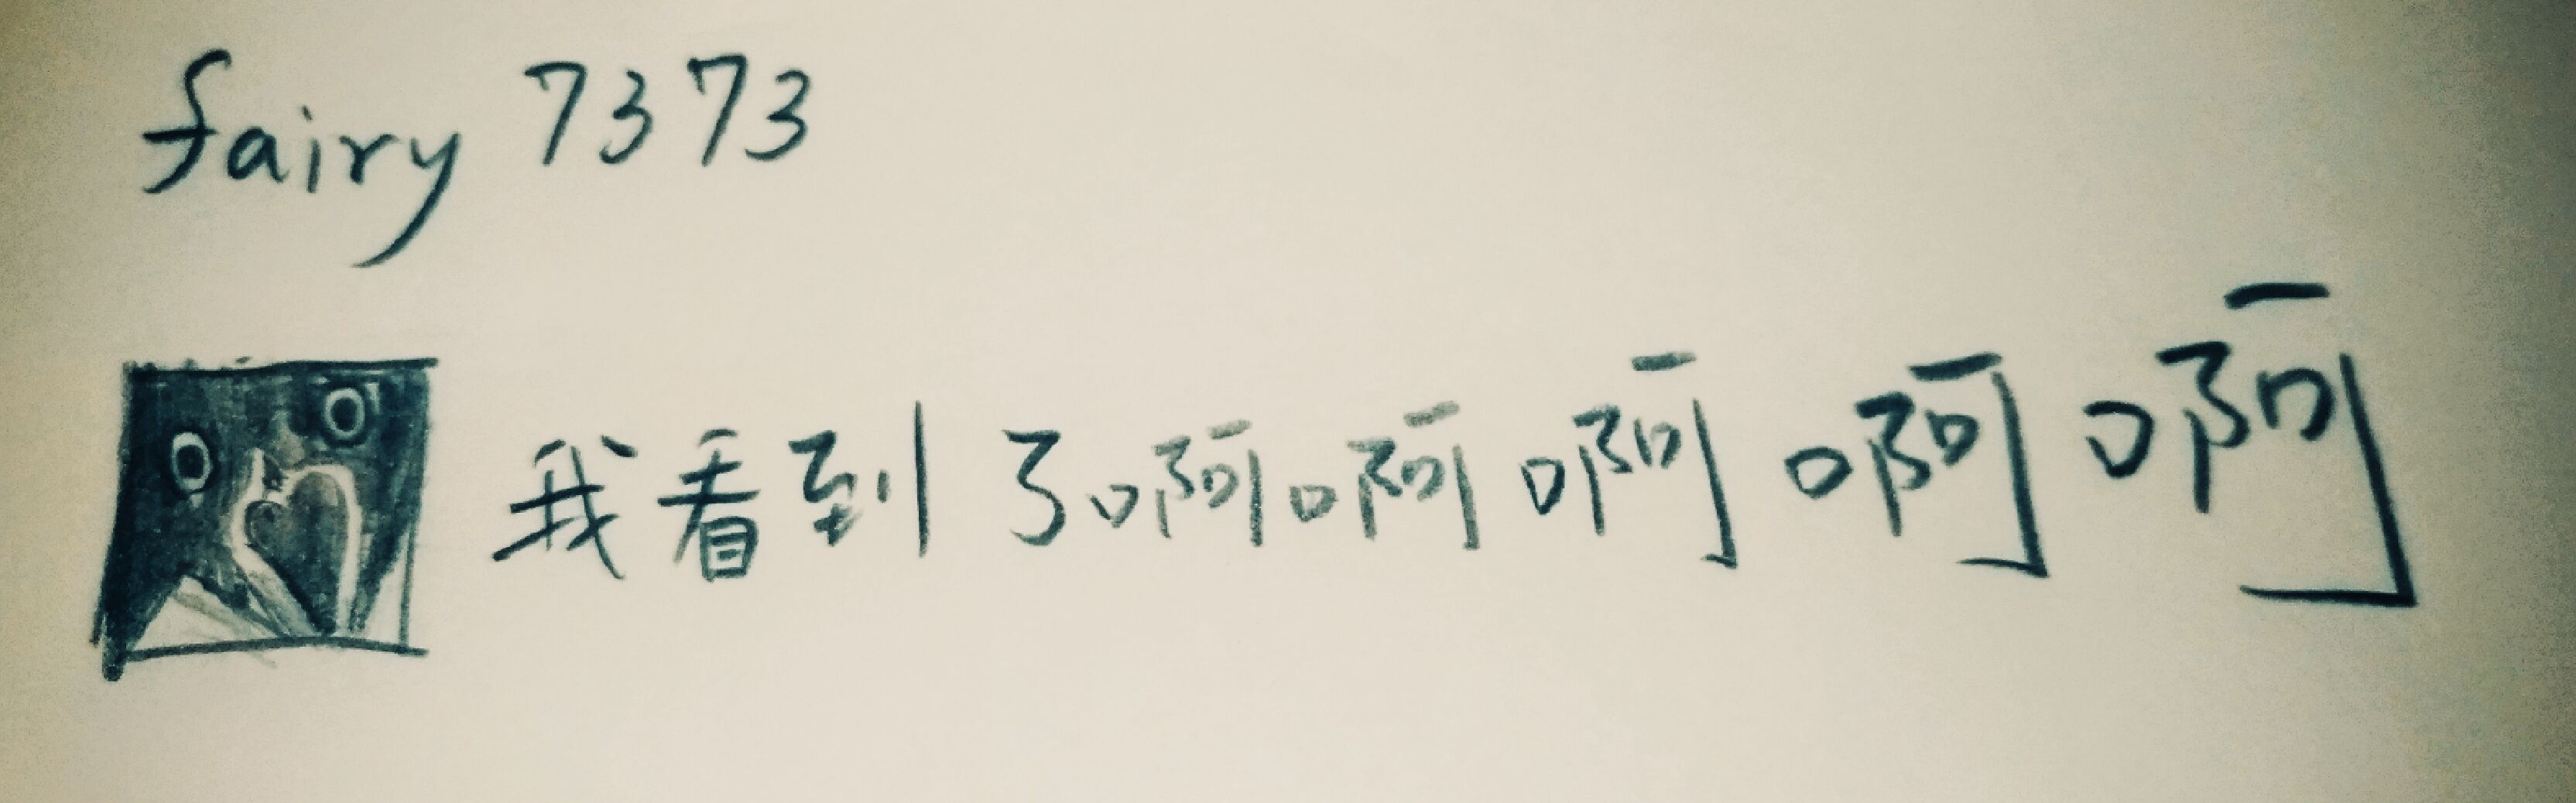 fairy 7373
我看到了啊啊啊啊啊